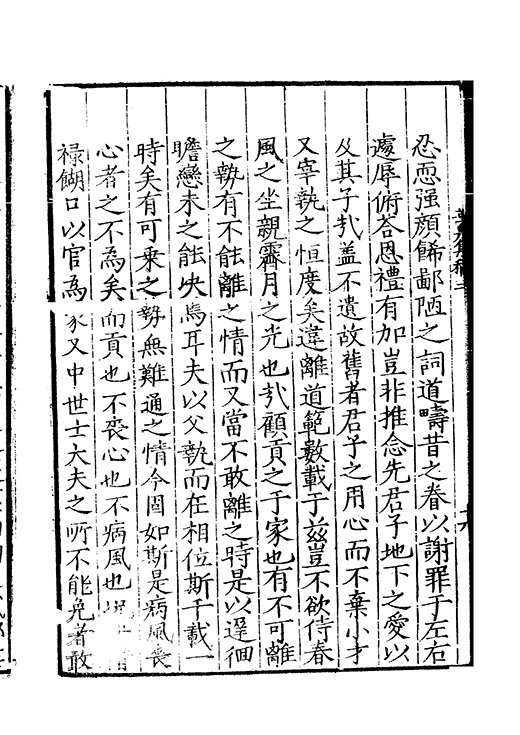 忍恧强顔餙鄙陋之詞道疇昔之眷以謝罪于左右
遽辱俯荅恩禮有加豈非推念先君子地下之愛以
及其子㢤盖不遺故舊者君子之用心而不棄小才
又宰執之恒度矣違離道範數載于兹豈不欲侍春
風之坐親霽月之光也㢤顧貢之于家也有不可離
之勢有不能離之情而又當不敢離之時是以遲徊
瞻戀未之能决焉耳夫以父執而在相位斯千載一
時矣有可乗之勢無難通之情今固如斯是病風喪
心者之不為矣而貢也不喪心也不病風也
禄餬口以官為家又中世士大夫之所不能免者敢